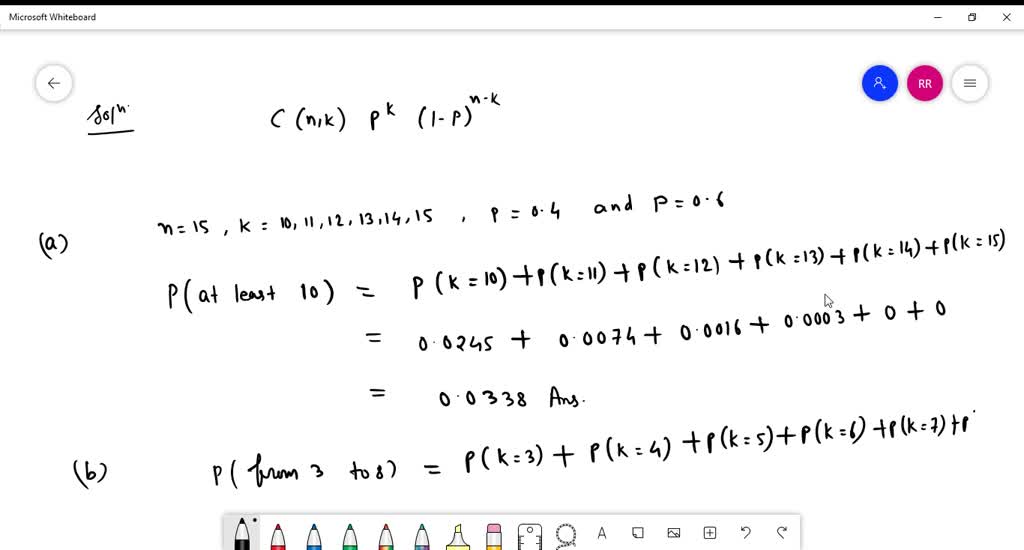 Microsoft Whiteboard
RR
Solⁿ.
C (n,k) p^k (1-p)^n-k
(a) n=15, k = 10, 11, 12, 13, 14, 15, p = 0.4 and p = 0.6
P(at least 10) = P(k=10)+P(k=11)+P(k=12)+P(k=13)+P(k=14)+P(k=15)
= 0.0245 + 0.0074 + 0.0016 + 0.0003 + 0 + 0
= 0.0338 Ans.
(b) P(from 3 to 8) = P(k=3) + P(k=4) +P(k=5)+P(k=6)+P(k=7)+P
A